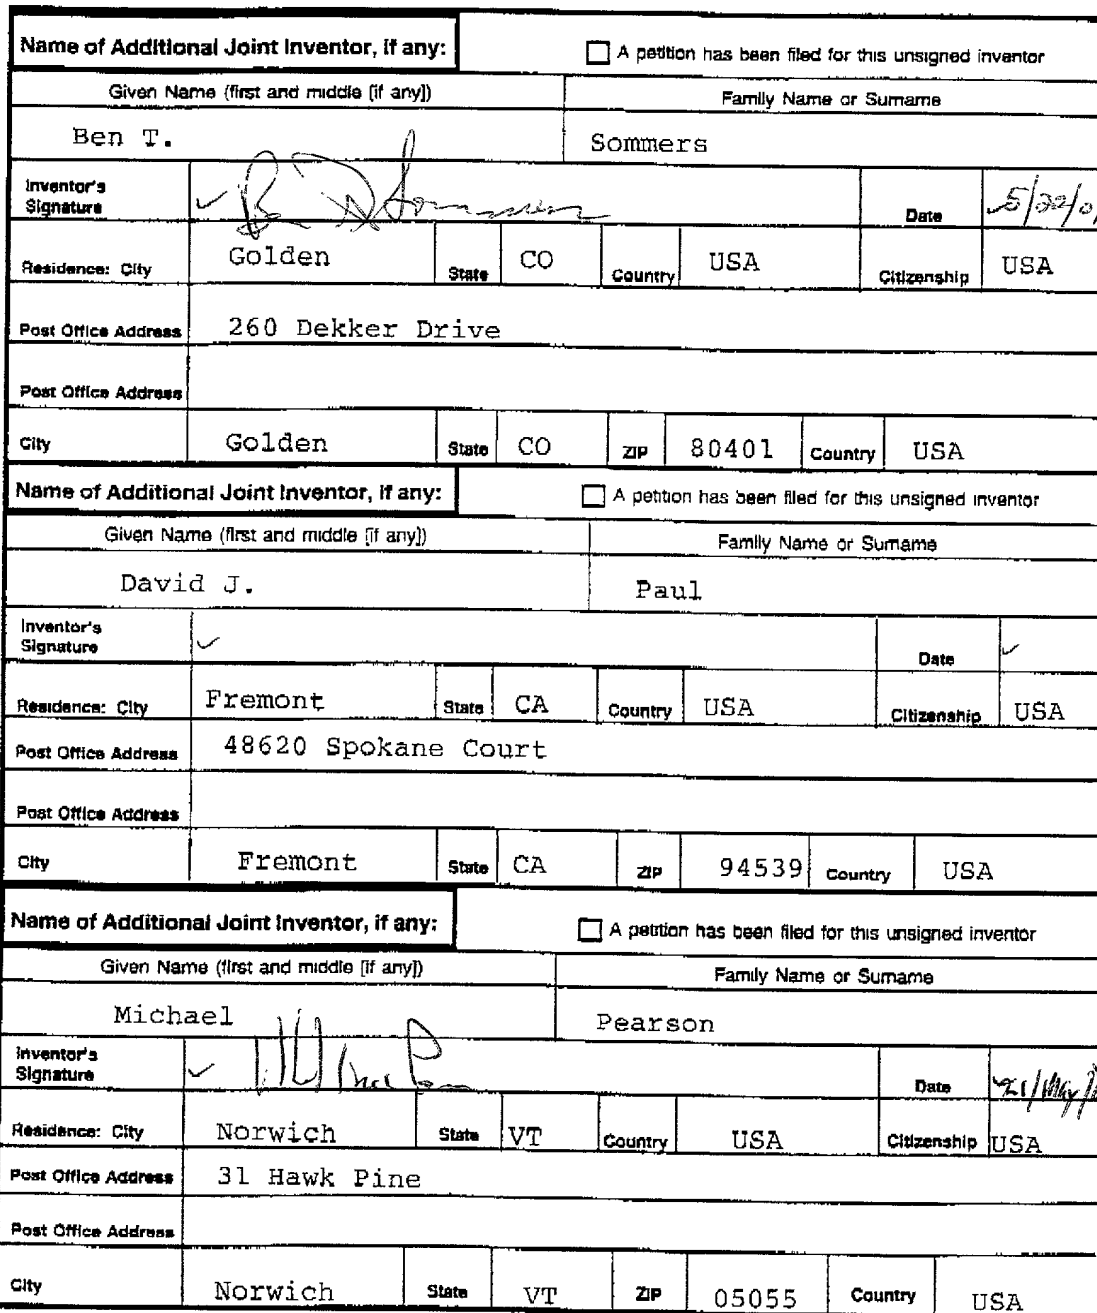 Name of Additional Joint Inventor, if any: A petition has been filed for this unsigned inventor
Given Name (first and middle [if any]) Family Name or Surname
Ben T. Sommers
Inventor's Signature Date
Residence: City Golden State CO Country USA Citizenship USA
Post Office Address 260 Dekker Drive
Post Office Address
City Golden State CO ZIP 80401 Country USA
Name of Additional Joint Inventor, if any: A petition has been filed for this unsigned inventor
Given Name (first and middle [if any]) Family Name or Surname
David J. Paul
Inventor's Signature Date
Residence: City Fremont State CA Country USA Citizenship USA
Post Office Address 48620 Spokane Court
Post Office Address
City Fremont State CA ZIP 94539 Country USA
Name of Additional Joint Inventor, if any: A petition has been filed for this unsigned inventor
Given Name (first and middle [if any]) Family Name or Surname
Michael Pearson
Inventor's Signature Date
Residence: City Norwich State VT Country USA Citizenship USA
Post Office Address 31 Hawk Pine
Post Office Address
City Norwich State VT ZIP 05055 Country USA